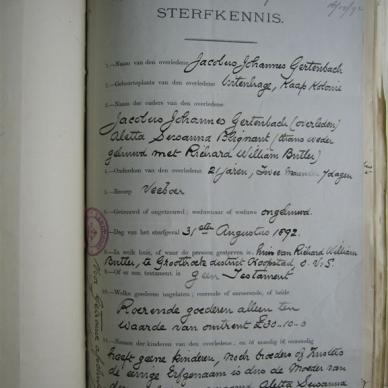 STERFKENNIS.
1.—Naam van den overledene Jacobus Johannes Gertenbach
2.—Geboorteplaats van den overledene Uitenhage, Kaap Kolonie
3.—Naam der ouders van den overledene
Jacobus Johannes Gertenbach (overleden)
Aletta Susanna Blignant (thans weder
gehuwd met Richard William Butler)
4.—Ouderdom van den overledene 21 jaren, twee maanden 7 dagen
5.—Beroep Veeboer
6.—Getrouwd of ongetrouwd; weduwnaar of weduwe ongehuwd.
7.—Dag van het sterfgeval 31ste Augustus 1892.
8.—In welk huis, of waar de persoon gestorven is, huis van Richard William
Butler, te Groothoek district Kroonstad O.V.S.
9.—Of er een testament is Geen Testament
10.—Welke goederen nagelaten; roerende of onroerende, of beide
Roerende goederen alleen ten
waarde van omtrent £30-10-0
11.—Namen der kinderen van den overledene; en of mondig of onmondig
heeft geene kinderen, noch broeders of zusters
de eenige Erfgenaam is dus de Moeder van
den Aletta Susanna